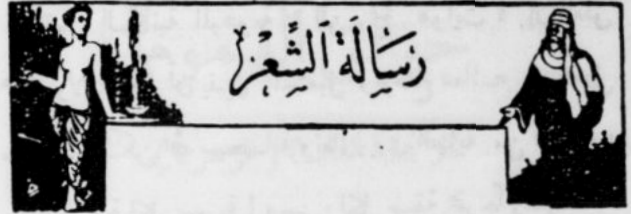 رسَالَة الشِّعْر